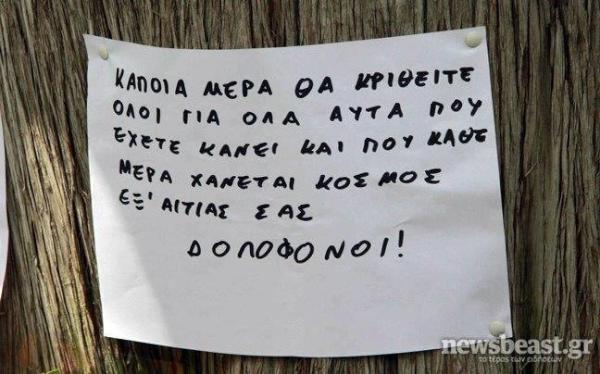 ΚΑΠΟΙΑ ΜΕΡΑ ΘΑ ΚΡΙΘΕΙΤΕ
ΟΛΟΙ ΓΙΑ ΟΛΑ ΑΥΤΑ ΠΟΥ
ΕΧΕΤΕ ΚΑΝΕΙ ΚΑΙ ΠΟΥ ΚΑΘΕ
ΜΕΡΑ ΧΑΝΕΤΑΙ ΚΟΣΜΟΣ
ΕΞ' ΑΙΤΙΑΣ ΣΑΣ
ΔΟΛΟΦΟΝΟΙ!
newsbeast.gr
το τέρας των ειδήσεων